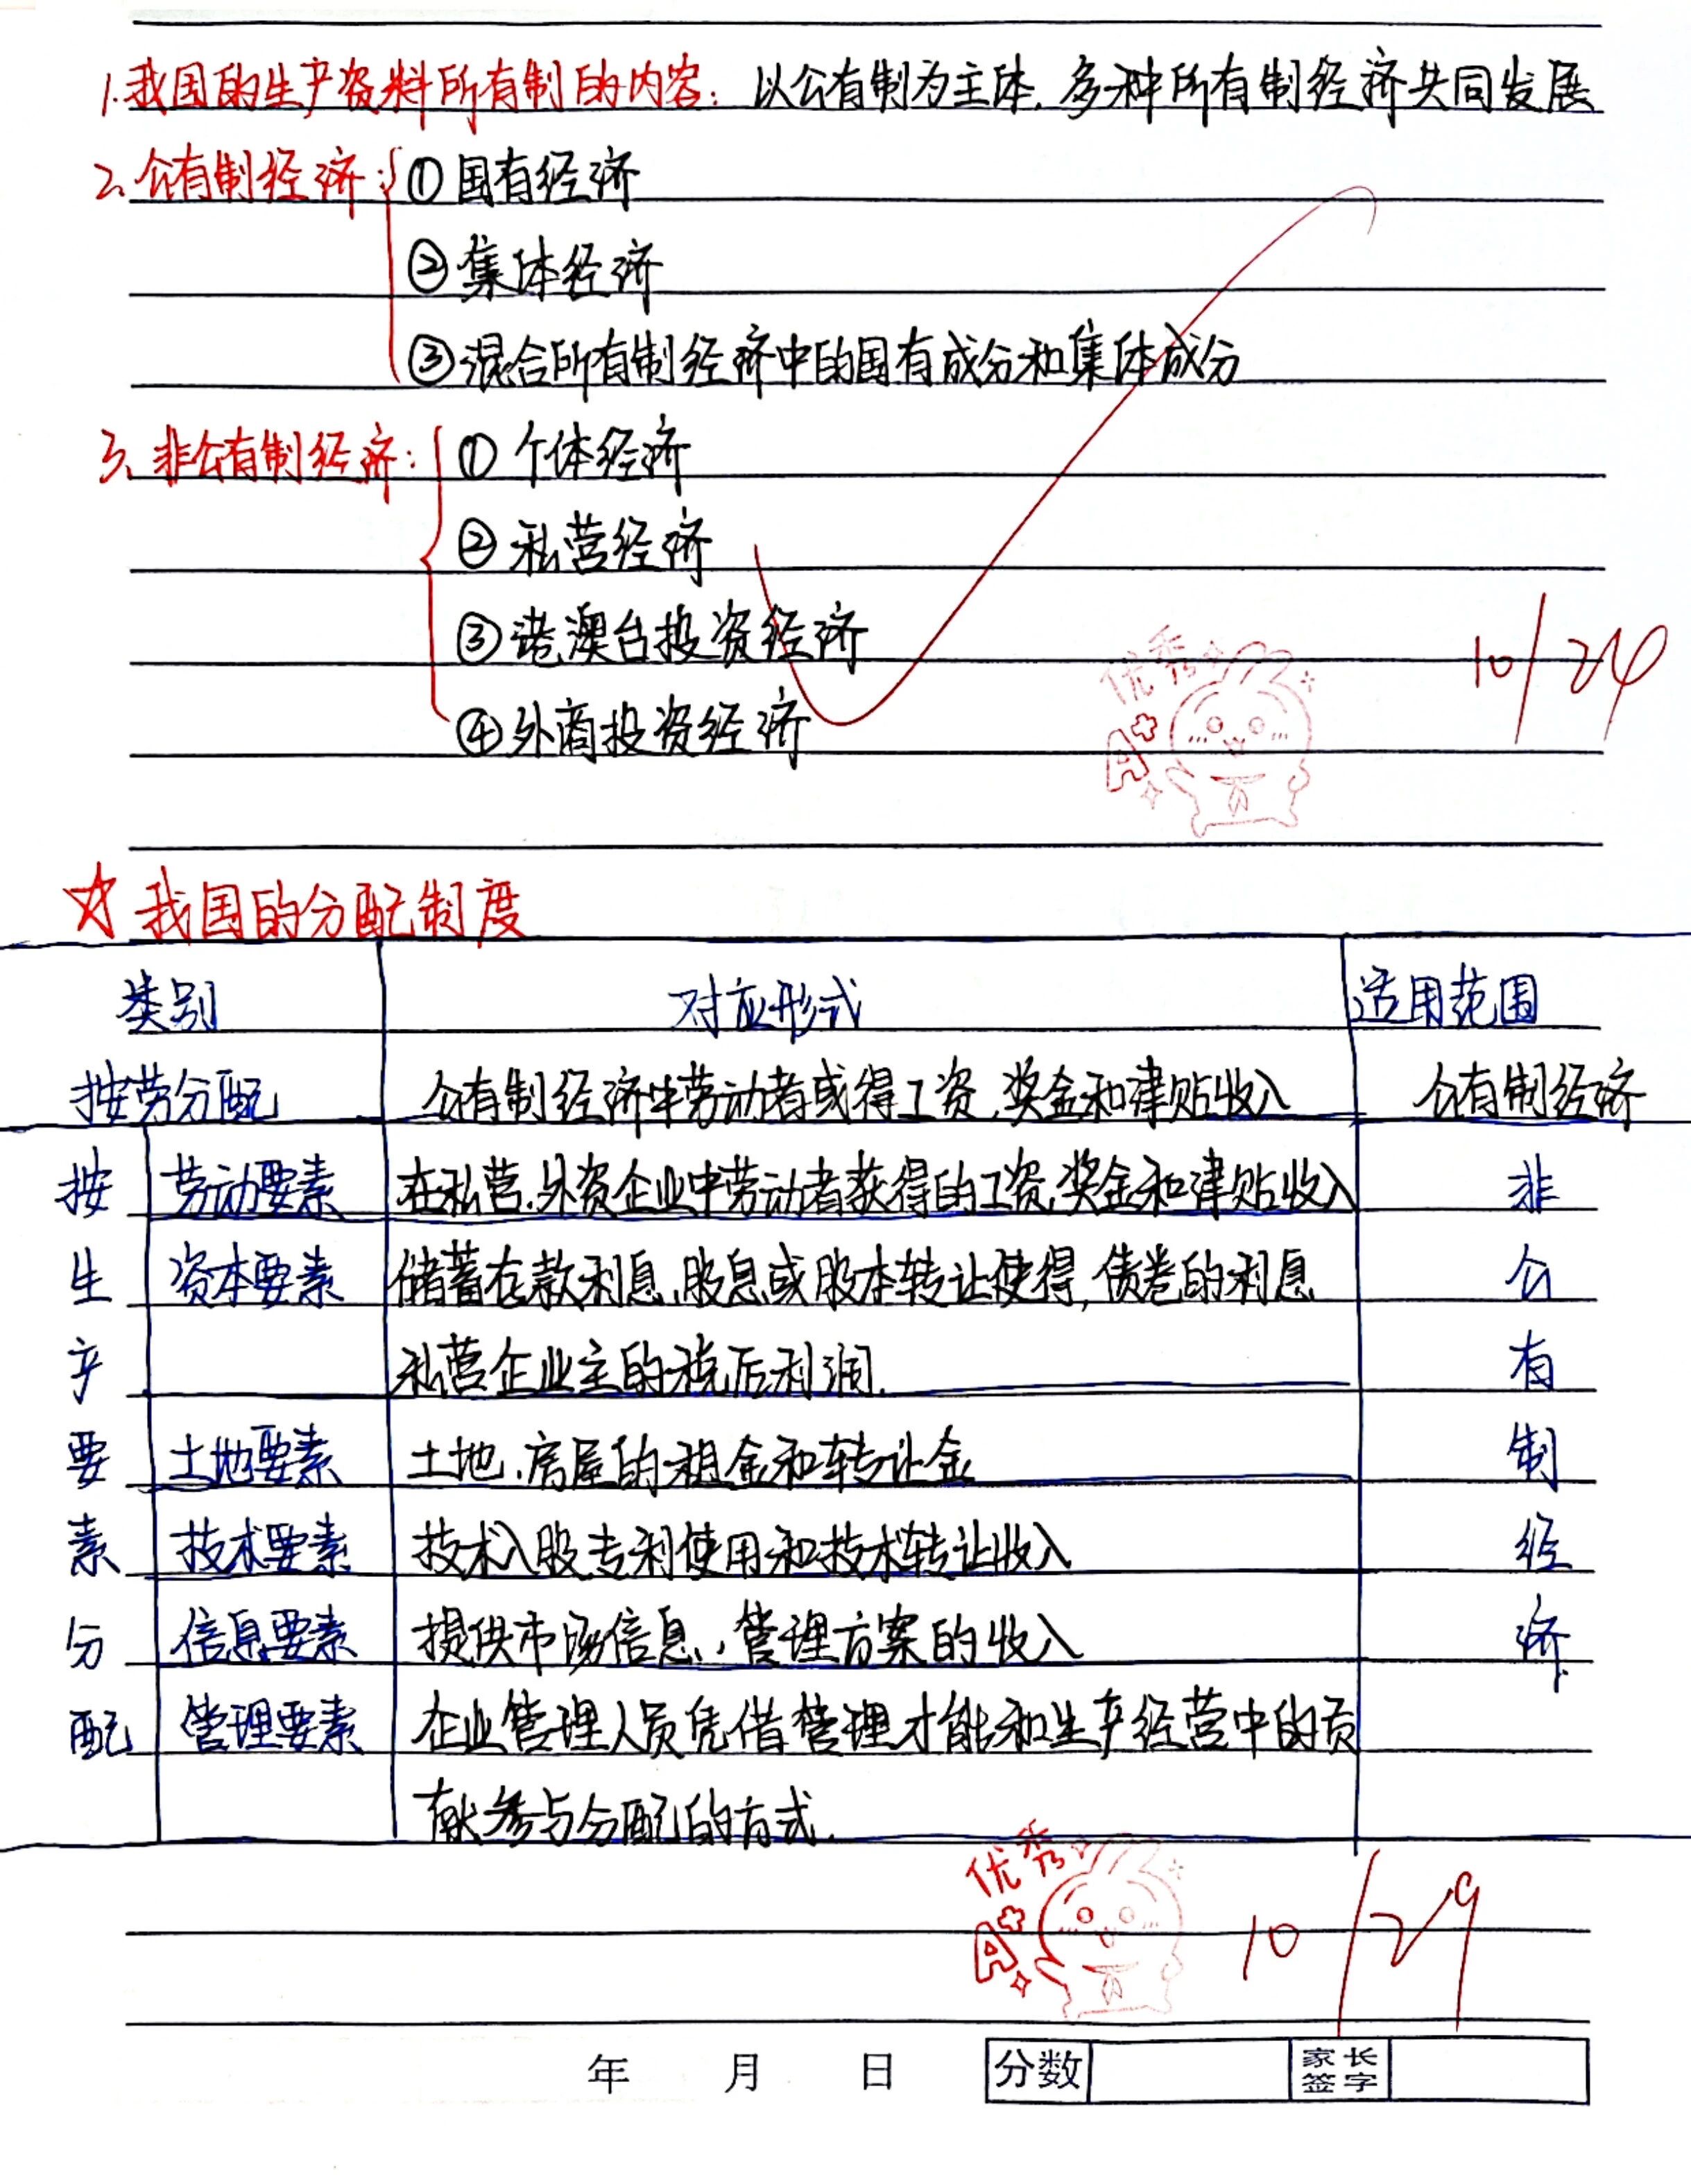 1.我国的生产资料所有制的内容：以公有制为主体，多种所有制经济共同发展
2、公有制经济：①国有经济
②集体经济
③混合所有制经济中的国有成分和集体成分
3、非公有制经济：①个体经济
②私营经济
③港澳台投资经济
④外商投资经济
10/24
优秀
A+
☆我国的分配制度
类别 对应形式 适用范围
按劳分配 公有制经济中劳动者或得工资、奖金和津贴收入 公有制经济
按 劳动要素 在私营、外资企业中劳动者获得的工资、奖金和津贴收入 非
生 资本要素 储蓄存款利息、股息或股本转让使得，债卷的利息 公
产 私营企业主的税后利润. 有
要 土地要素 土地、房屋的租金和转让金 制
素 技术要素 技术入股专利使用和技术转让收入 经
分 信息要素 提供市场信息、管理方案的收入 济
配 管理要素 企业管理人员凭借管理才能和生产经营中的贡
献参与分配的方式.
优秀
A+
10/29
年 月 日 分数 家长签字